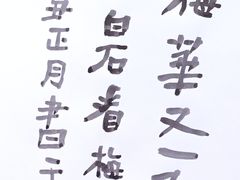 梅華又一
白石看梅
丑正月書于